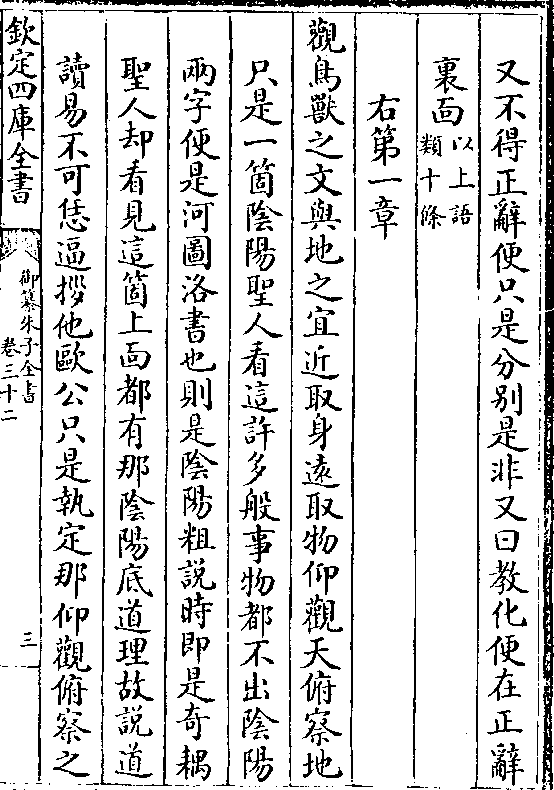 又不得正辭便只是分别是非又曰教化便在正辭
裏面以上語類十條
右第一章
觀鳥獸之文與地之宜近取身遠取物仰觀天俯察地
只是一箇陰陽聖人看這許多般事物都不出陰陽
兩字便是河圖洛書也則是陰陽粗説時即是奇耦
聖人却看見這箇上面都有那陰陽底道理故説道
讀易不可恁逼拶他歐公只是執定那仰觀俯察之
欽定四庫全書
御纂朱子全書
卷三十二
三